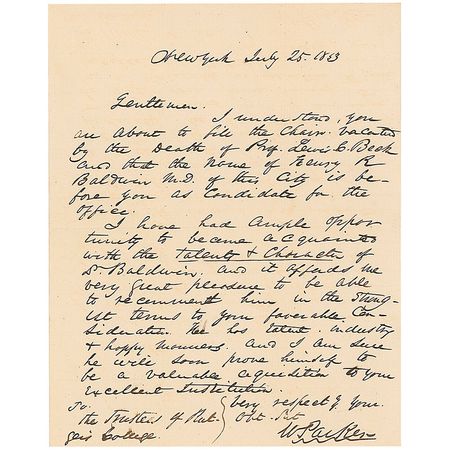 New York July 25. 1853
Gentlemen.
I understand, you
are about to fill the Chair vacated
by the Death of Prof. Lewis C. Beck
and that the Name of Henry R
Baldwin M.D. of this City is be-
fore you as Candidate for the
office.
I have had ample oppor
tunity to become acquainted
with the talents & Character of
Dr Baldwin. and it affords me
very great pleasure to be able
to recommend him in the strong-
est terms to your favorable Con-
sideration. He has talent. industry
& happy manners. and I am sure
he will soon prove himself to
be a valuable acquisition to your
Excellent Institution.
To.
the Trustees of Rut-
gers College.
Very respectf. your.
Obt. Svt
W Parker